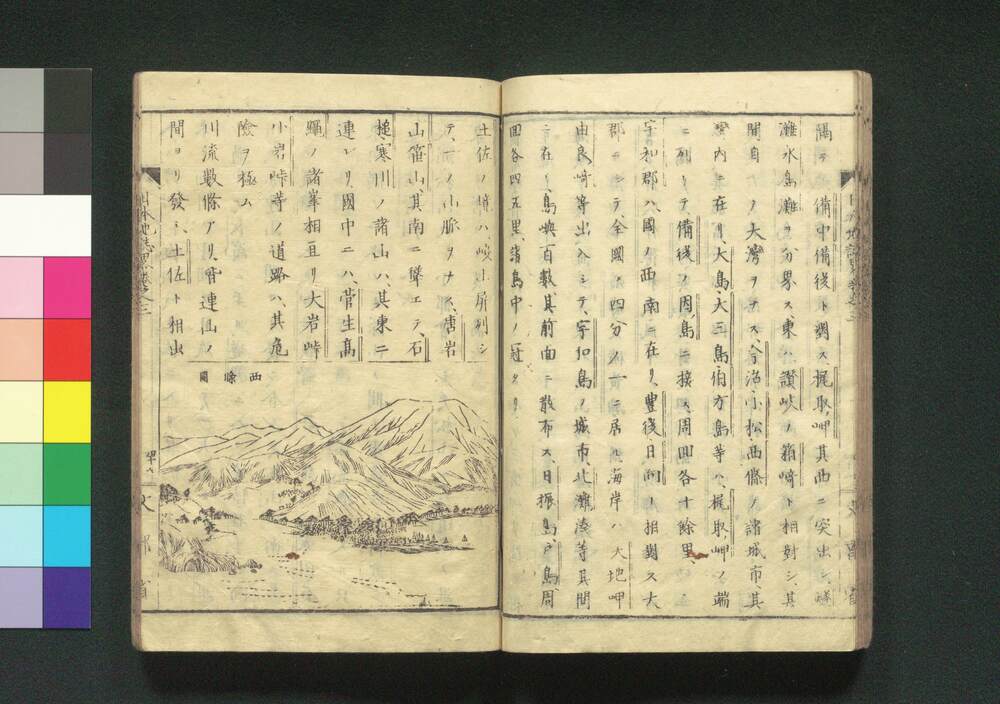 隅ニテ備中備後ト對ス梶取岬其西ニ突出シ燧
灘水島灘ヲ分界ス東ハ讃岐ノ箱﨑ト相對シ其
間自ラ一ノ大灣ヲナス今治小松西條ノ諸城市其
灣內ニ在リ大島大三島伯方島等ハ梶取岬ノ端
ニ列シテ備後ノ因島ニ接ス周回各十餘里
宇和郡ハ國ノ西南ニ在リ豊後日向ト相對ス大
郡ニシテ全國ノ四分ノ一ニ居ル海岸ハ大地岬
由良﨑等出入シテ宇和島ノ城市北灘湊等其間
ニ在リ島嶼百數其前面ニ散布ス日振島戸島周
回各四五里諸島中ノ冠タリ
土佐ノ境ハ峻山屏列シ
テ一ノ山脈ヲナス唐岩
山笹山其南ニ聳エテ石
槌寒川ノ諸山ハ其東ニ
連ナリ國中ニハ菅生高
繩ノ諸峯相亙リ大岩峠
小岩峠等ノ道路ハ其危
險ヲ極ム
川流數條アリ皆連山ノ
間ヨリ發ス土佐ト相出
西條圖
日本地誌略卷之三
四十八
文部省